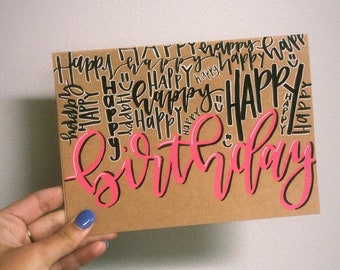 HAPPY happy happy
Happy happy happy happy
happy HAPPY happy HAPPY
HAPPY Happy happy HAPPY
happy HAPPY happy HAPPY
birthday